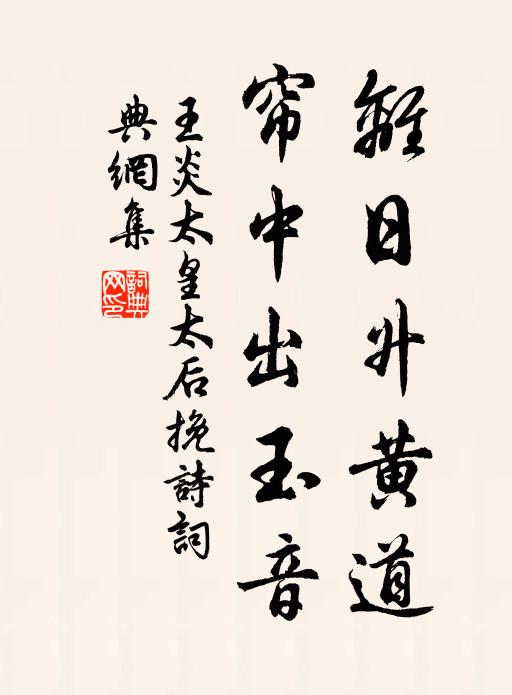 離日升黄道
帘中出玉音
王炎太皇太后挽詩詞
典網集
詞典
网印